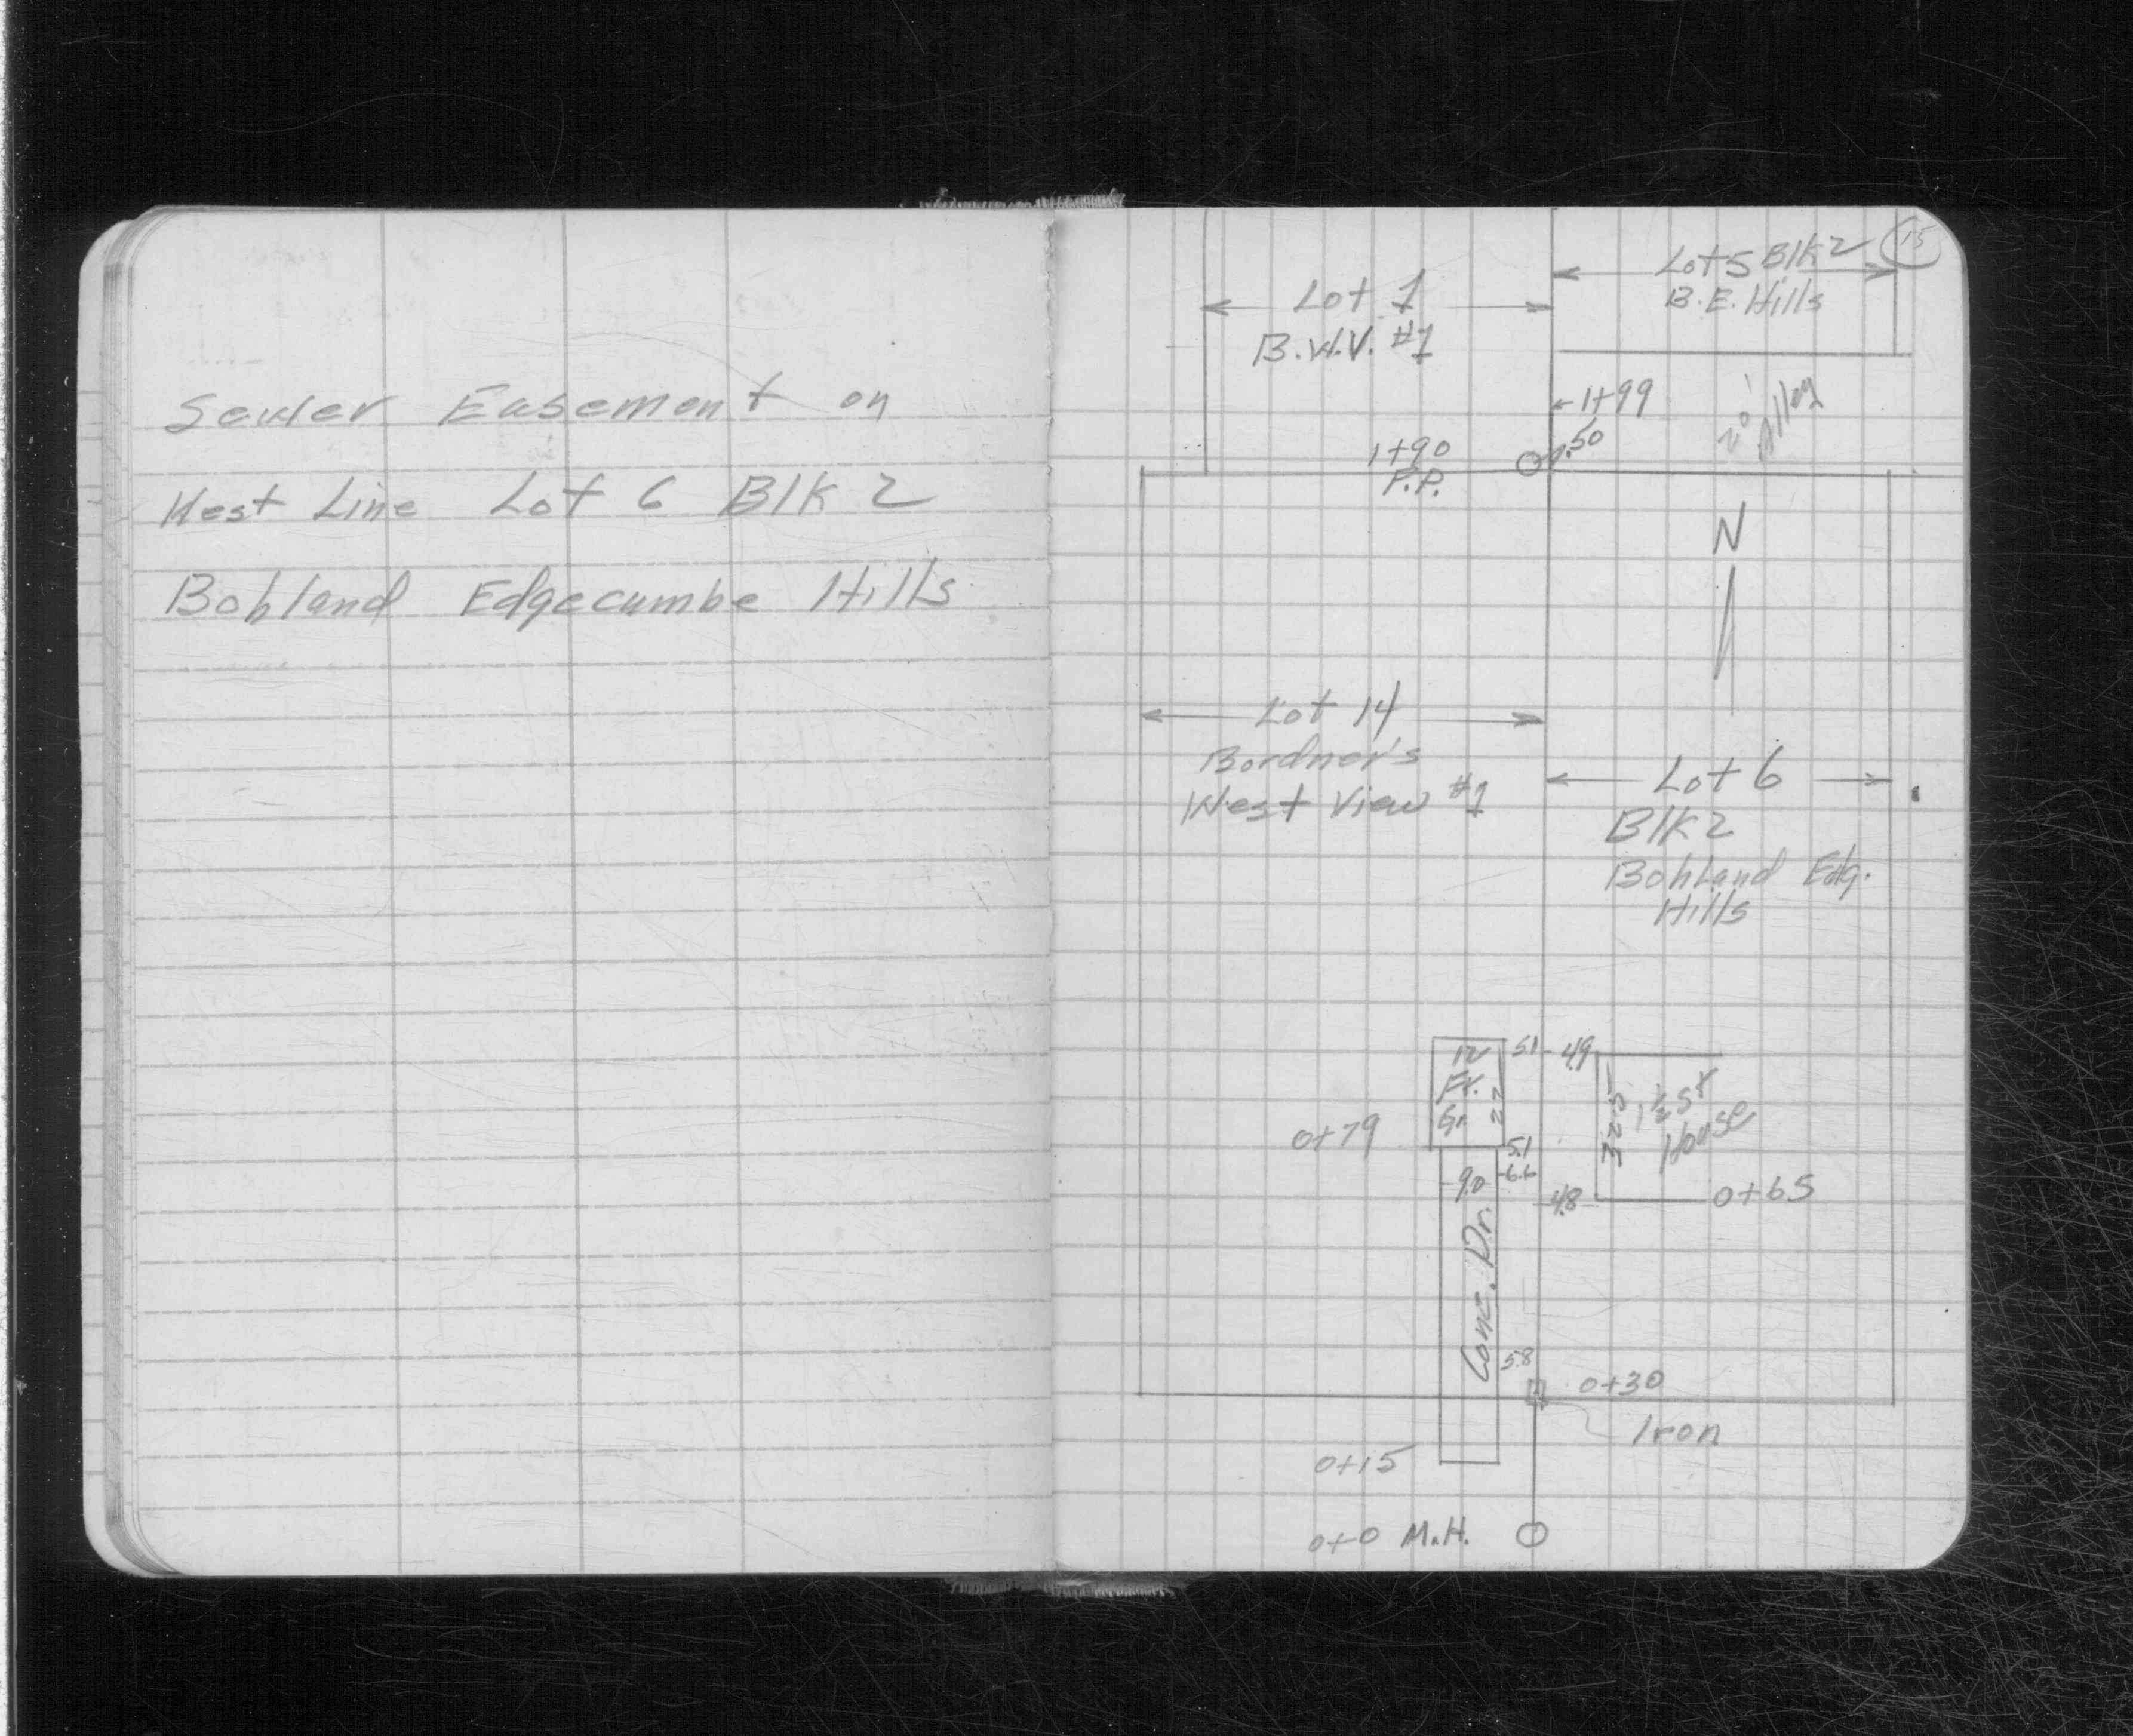 Sewer Easement on
West Line Lot 6 Blk 2
Bohland Edgecumbe Hills
15
Lot 5 Blk 2
B.E. Hills
Lot 1
B.W.V. #1
1+99
20' Alley
1+90
P.P.
.50
N
Lot 14
Bordner's
West View #1
Lot 6
Blk 2
Bohland Edg.
Hills
12
Fr.
Gr.
22
5.1
4.9
1½ St
House
0+79
5.1
6.6
9.0
4.8
0+65
Conc. Dr.
5.8
0+30
Iron
0+15
0+0 M.H.